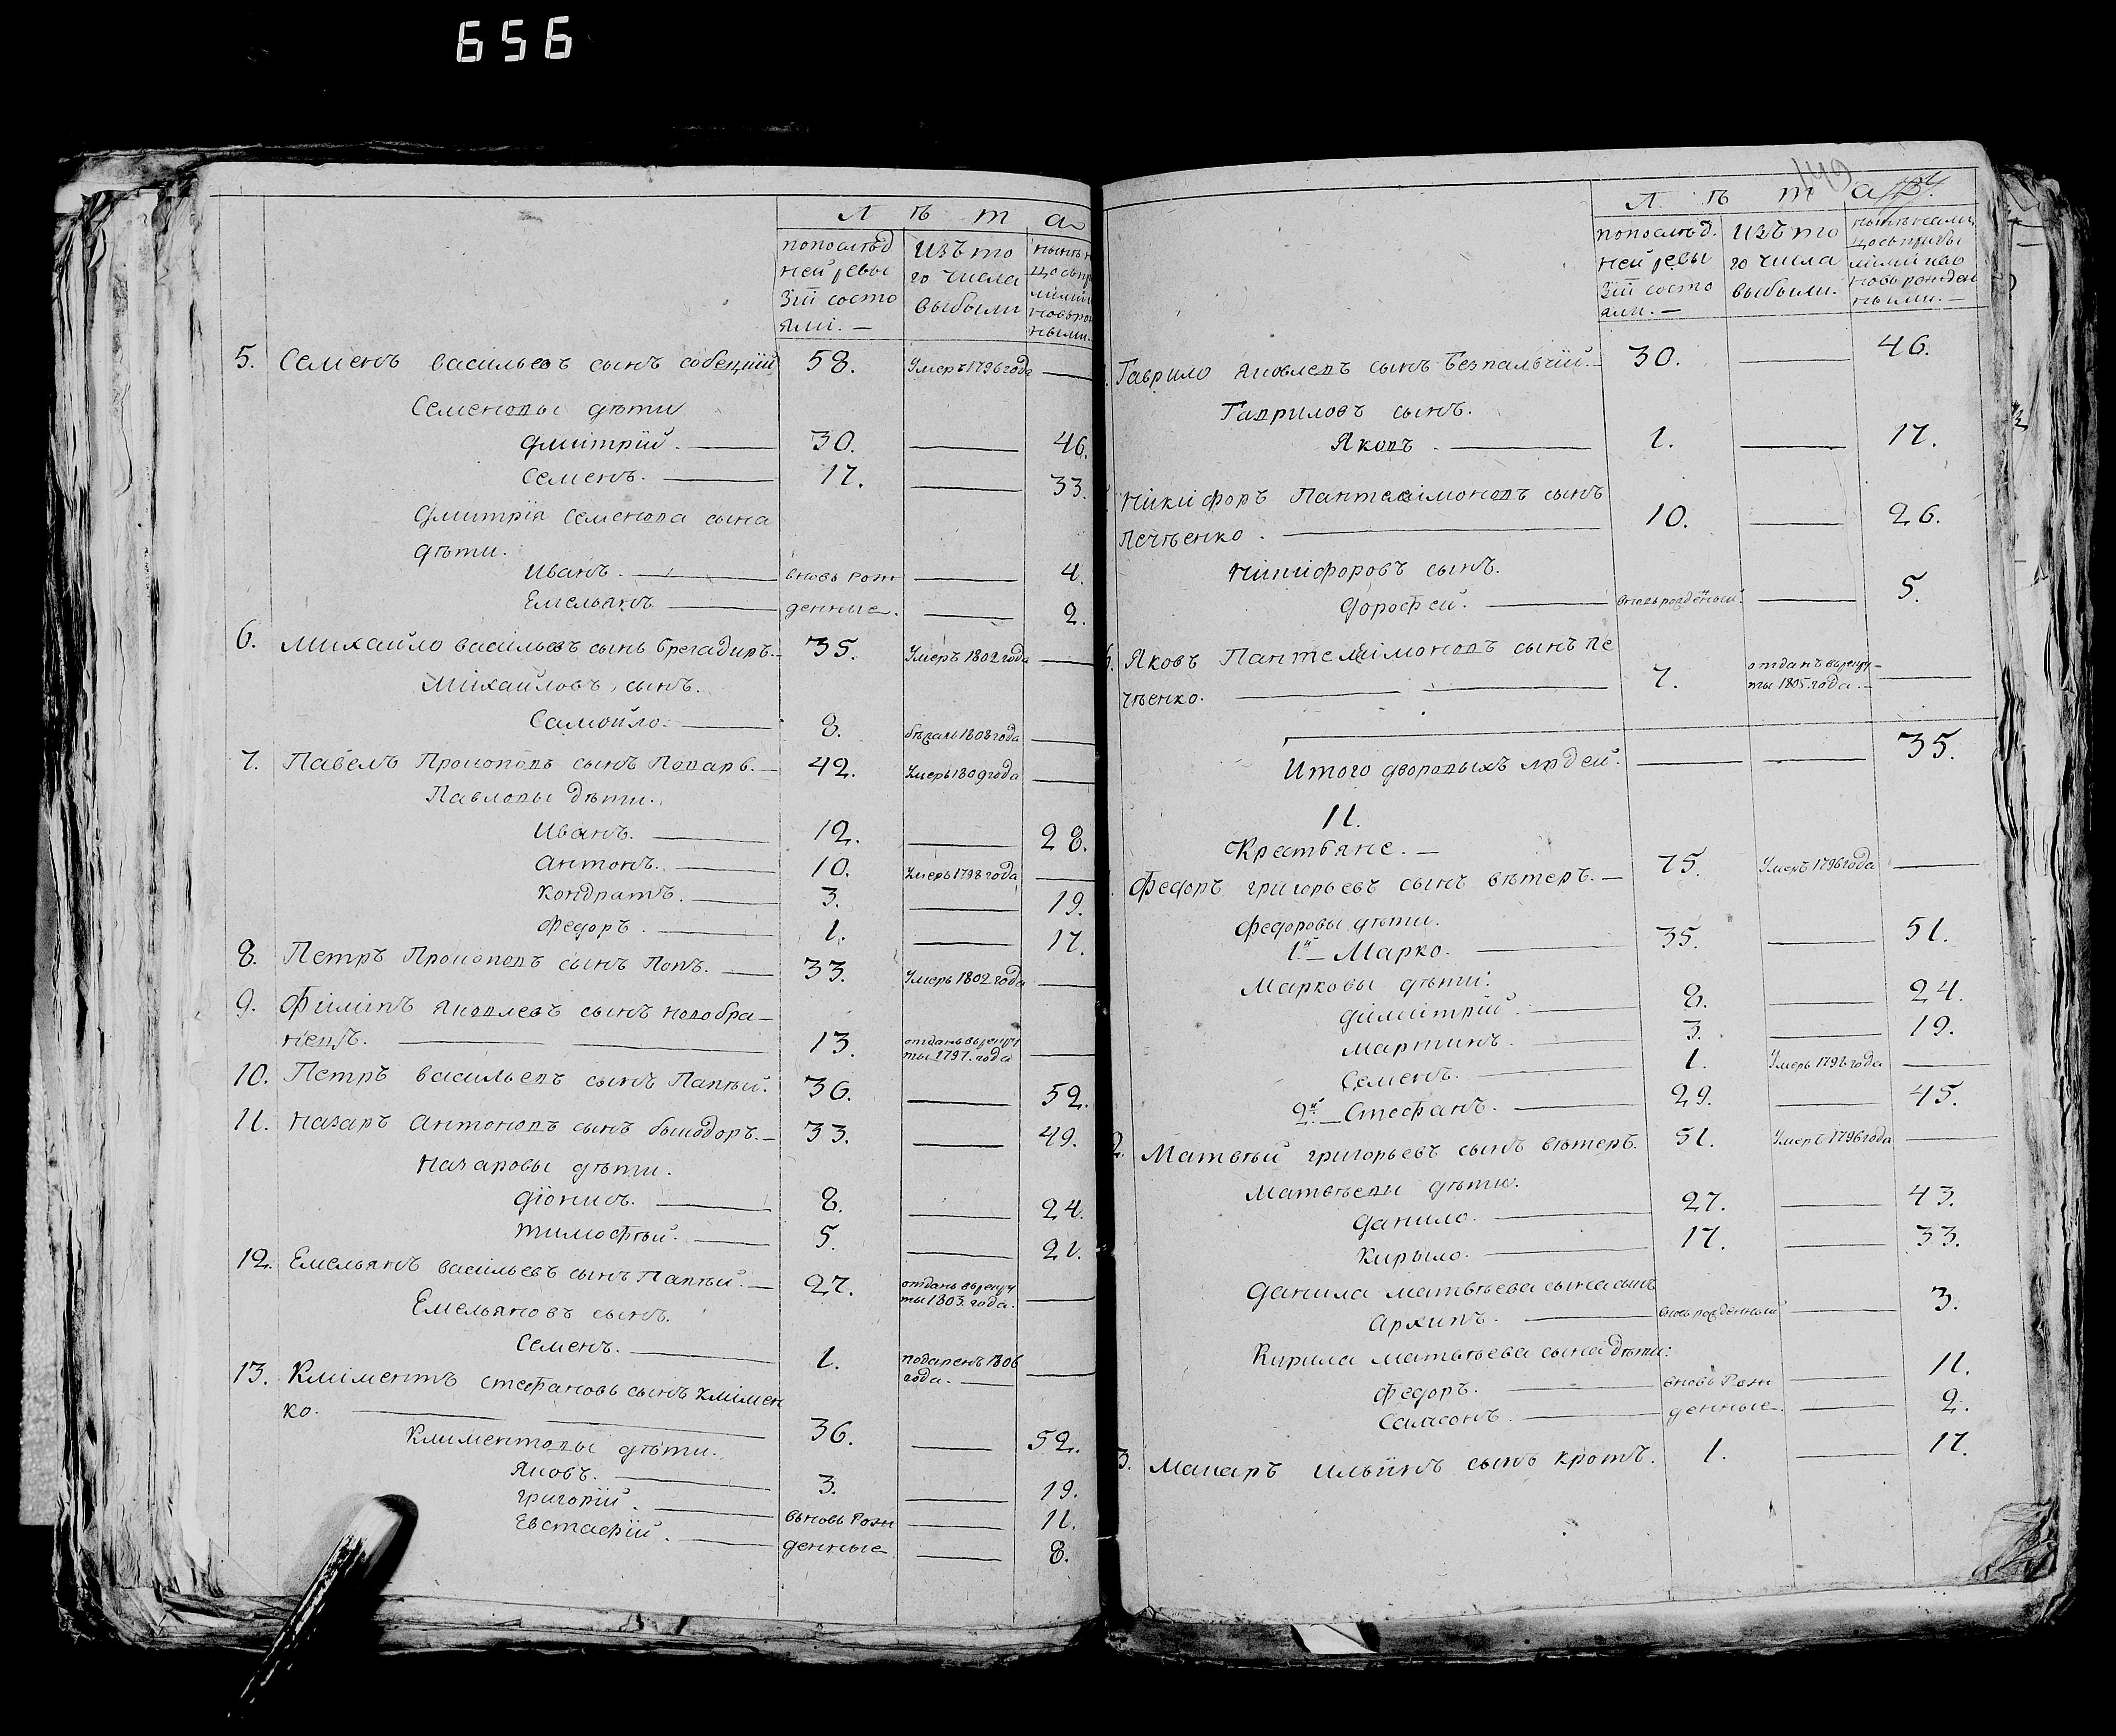 656
Л ѣ т а
попослѣд
ней ревы
зіи состо
яли. —
изъ то
го числа
выбыли
5. Семенъ васильевъ сынъ собецкій 58. умеръ 1796 года —
Семеновы дѣти
дмитрій. — 30. — 46.
Семенъ. — 17. — 33.
дмитрія Семенова сына
дѣти.
Иванъ. — вновь рож — 4.
Емельянъ — денные. — 2.
6. Михайло васильевъ сынъ брегадиръ. — 35. умеръ 1802 года —
Михайловъ сынъ.
Самойло. — 8. бѣжалъ 1808 года —
7. Павелъ Прокоповъ сынъ Поваръ. — 42. умеръ 1809 года —
Павловы дѣти.
Иванъ. — 12. — 28.
антонъ. — 10. умеръ 1798 года —
кондратъ. — 3. — 19.
федоръ. — 1. — 17.
8. Петръ Прокоповъ сынъ Попъ. — 33. умеръ 1802 года —
9. Филипъ Яковлевъ сынъ новобра—
нецъ. — — 13. отданъ врекру
ты 1797. года —
10. Петръ васильевъ сынъ Папѣй. 36. — 52.
11. Назаръ антоновъ сынъ — 33. — 49.
Назаровы дѣти.
діонис. — 8. — 24.
тимофѣй. — 5. — 21.
12. Емельянъ васильевъ сынъ Папѣй. — 27. отданъ врекру
ты 1803. года. —
Емельяновъ сынъ.
Семенъ. — 1. подаренъ 1806
года. — —
13. Климентъ стефановъ сынъ климен
ко. — — 36. — 52.
Климентовы дѣти.
Яковъ. — 3. — 19.
григорій. — вновь рож — 11.
Евстафій. — денные — 8.
Л ѣ т а
попослѣд.
ней ревы
зіи состо
яли. —
изъ то
го числа
выбыли.
Гаврило яковлевъ сынъ безпальчій. — 30. — 46.
Гавриловъ сынъ.
Яковъ. — 1. — 17.
никифоръ Пантелимоновъ сынъ
печѣенко. — 10. — 26.
никифоровъ сынъ.
дорофей. — вновь рожденый. — 5.
Яковъ Пантелимоновъ сынъ пе
чѣенко. — — 7. отданъ врекру—
ты 1805. года. — —
Итого дворовыхъ людей. — — 35.
11.
Крестьяне. —
федоръ григорьевъ сынъ вѣтеръ. — 75. умеръ 1796 года —
федоровы дѣти.
1й — Марко. — 35. — 51.
Марковы дѣти:
димитрій. — 8. — 24.
мартинъ. — 3. — 19.
Семенъ. — 1. умеръ 1798 года —
2й — Стефанъ. — 29. — 45.
2. Матвѣй григорьевъ сынъ вѣтеръ. 51. умеръ 1796 года —
Матвѣевы дѣти.
данило. — 27. — 43.
кирыло. — 17. — 33.
данила матвѣева сына сынъ
архипъ. — вновь рожденный — 3.
кирила матвѣева сына дѣти:
федоръ. — вновь рож — 11.
Самсонъ. — денные — 2.
3. Макаръ ильинъ сынъ кротъ. 1. — 17.